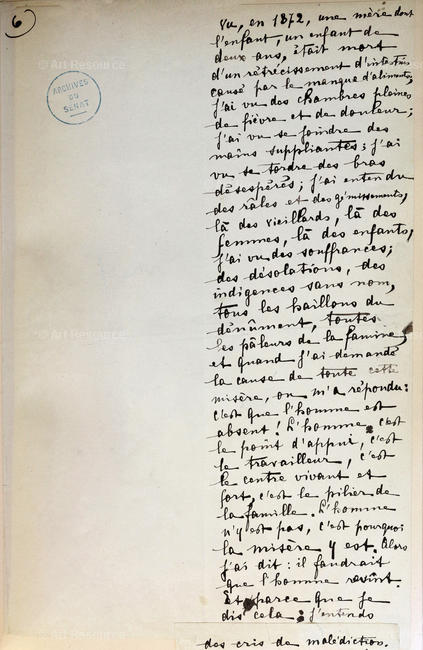 6
ARCHIVES
DU
SÉNAT
vu, en 1872, une mère dont
l'enfant, un enfant de
deux ans, était mort
d'un rétrécissement d'intestins
causé par le manque d'aliments,
j'ai vu des chambres pleines
de fièvre et de douleur;
j'ai vu se joindre des
mains suppliantes; j'ai
vu se tordre des bras
désespérés; j'ai entendu
des râles et des gémissements,
là des vieillards, là des
femmes, là des enfants,
j'ai vu des souffrances;
des désolations, des
indigences sans nom,
tous les haillons du
dénûment, toutes
les pâleurs de la famine,
et quand j'ai demandé
la cause de toute cette
misère, on m'a répondu:
c'est que l'homme est
absent! L'homme, c'est
le point d'appui, c'est
le travailleur, c'est
le centre vivant et
fort, c'est le pilier de
la famille. L'homme
n'y est pas, c'est pourquoi
la misère y est. Alors
j'ai dit: il faudrait
que l'homme revînt.
Et parce que je
dis cela, j'entends
des cris de malédiction.
© Art Resource